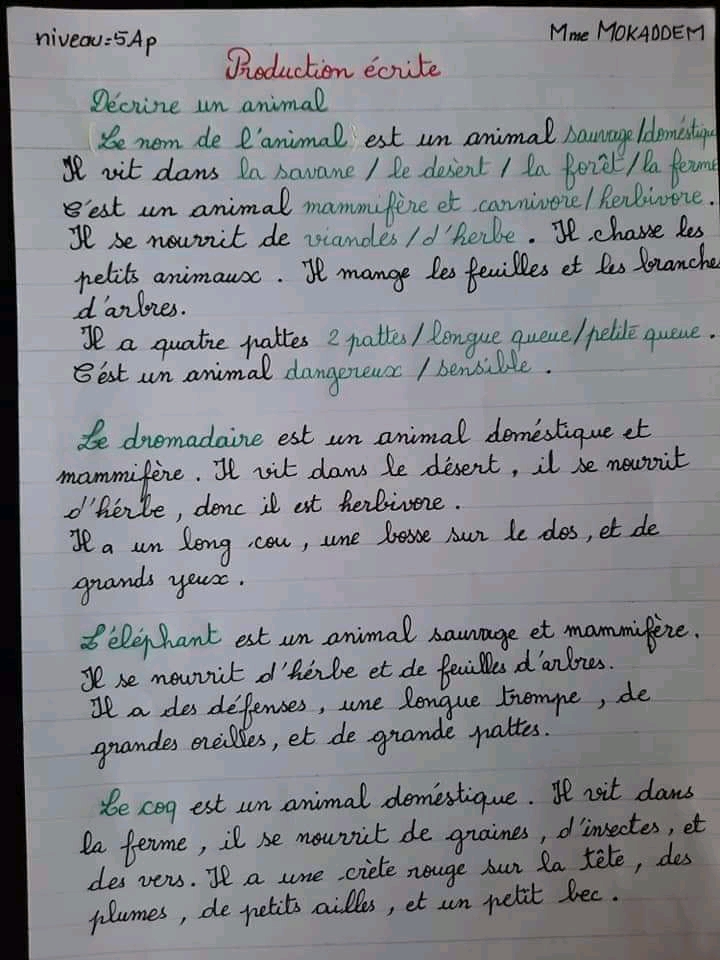 niveau=5Ap
Mme MOKADDEM
Production écrite
Décrire un animal
(Le nom de l'animal) est un animal sauvage/doméstique
Il vit dans la savane / le desèrt / la forêt/la ferme
C'est un animal mammifère et carnivore/herbivore.
Il se nourrit de viandes/d'herbe. Il chasse les
petits animaux. Il mange les feuilles et les branches
d'arbres.
Il a quatre pattes 2 pattes/longue queue/petite queue.
C'ést un animal dangereux /sensible.
Le dromadaire est un animal doméstique et
mammifère. Il vit dans le désert, il se nourrit
d'hérbe, donc il est herbivore.
Il a un long cou, une bosse sur le dos, et de
grands yeux.
L'éléphant est un animal sauvage et mammifère.
Il se nourrit d'hérbe et de feuilles d'arbres.
Il a des défenses, une longue trompe, de
grandes oreilles, et de grande pattes.
Le coq est un animal doméstique. Il vit dans
la ferme, il se nourrit de graines, d'insectes, et
des vers. Il a une crète rouge sur la tête, des
plumes, de petits ailles, et un petit bec.